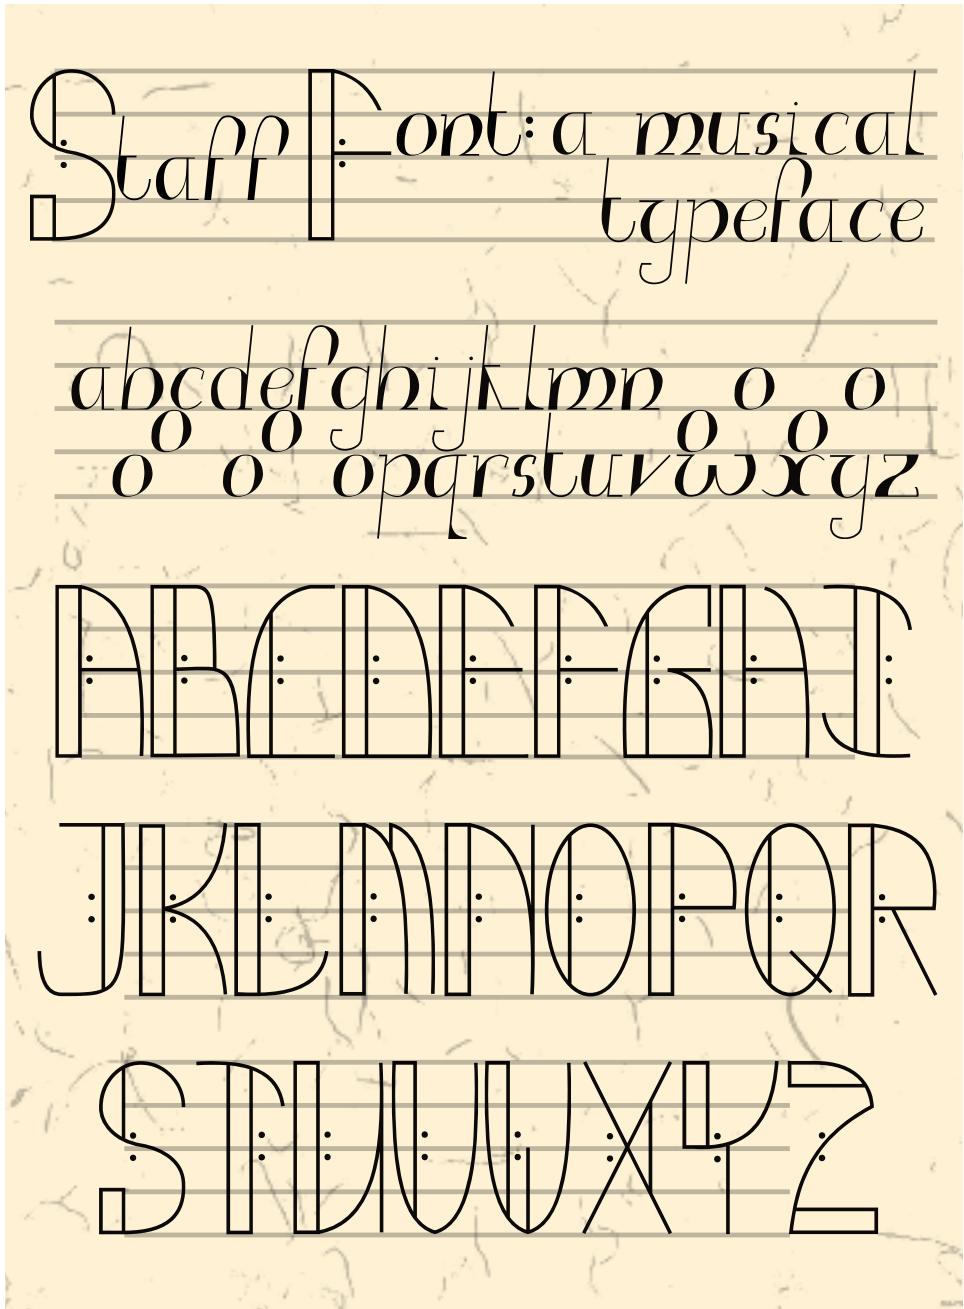 Staff Font: a musical
typeface
abcdefghijklmn o o
o o o o
o o opqrstuvwxyz
ABCDEFGHI
JKLMNOPQR
STUVWXYZ